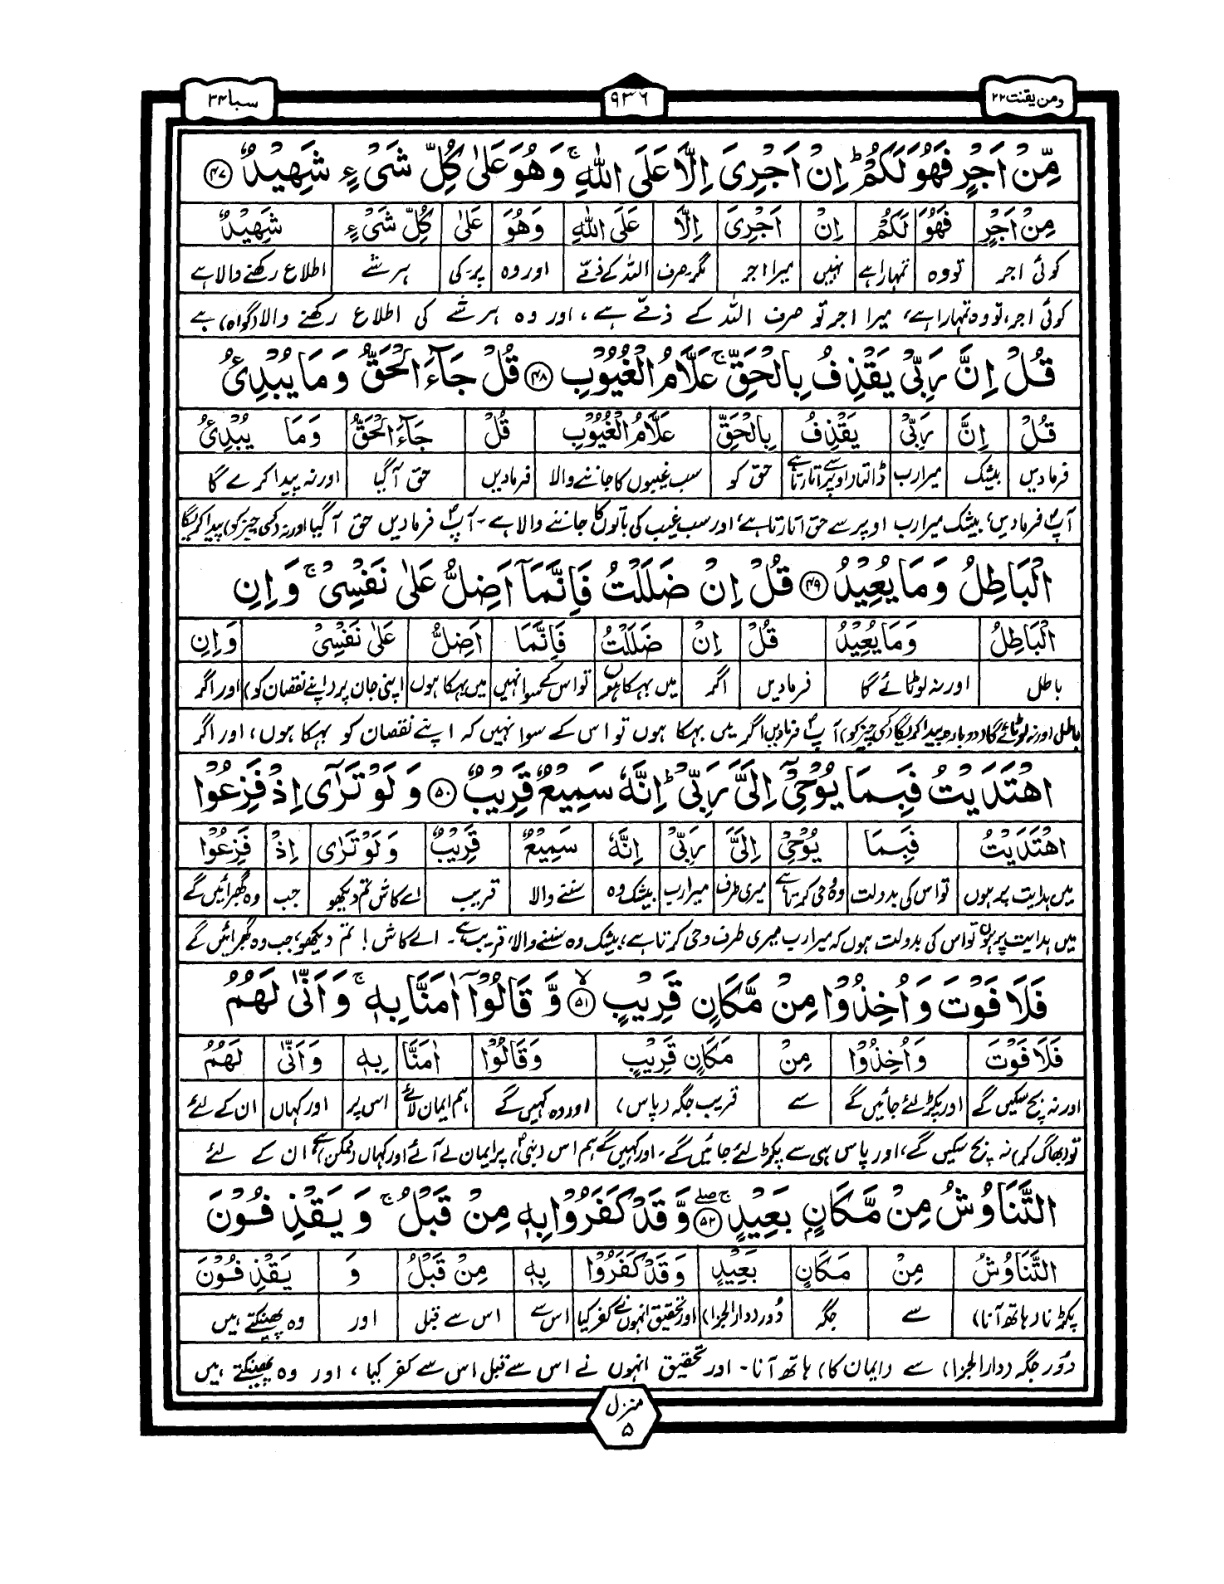 ومن یقنت ۲۲
۹۳۶
سبا ۳۴
مِّنْ اَجْرٍ فَهُوَ لَكُمْ ؕ اِنْ اَجْرِیَ اِلَّا عَلَی اللّٰهِ ۚ وَهُوَ عَلٰی كُلِّ شَیْءٍ شَهِیْدٌ ﴿۴۷﴾
مِنْ اَجْرٍ فَهُوَ لَكُمْ اِنْ اَجْرِیَ اِلَّا عَلَی اللّٰهِ وَهُوَ عَلٰی كُلِّ شَیْءٍ شَهِیْدٌ
کوئی اجر تو وہ تمہارا ہے نہیں میرا اجر مگر صرف اللہ کے ذمّے اور وہ پر۔ کی ہر شے اطلاع رکھنے والا ہے
کوئی اجر، تو وہ تمہارا ہے، میرا اجر تو صرف اللہ کے ذمّے ہے، اور وہ ہر شے کی اطلاع رکھنے والا (گواہ) ہے
قُلْ اِنَّ رَبِّیْ یَقْذِفُ بِالْحَقِّ ۚ عَلَّامُ الْغُیُوْبِ ﴿۴۸﴾ قُلْ جَآءَ الْحَقُّ وَمَا یُبْدِئُ
قُلْ اِنَّ رَبِّیْ یَقْذِفُ بِالْحَقِّ عَلَّامُ الْغُیُوْبِ قُلْ جَآءَ الْحَقُّ وَمَا یُبْدِئُ
فرما دیں بیشک میرا رب ڈالتا (اوپر سے اتارتا) ہے حق کو سب غیبوں کا جاننے والا فرما دیں حق آگیا اور نہ پیدا کرے گا
آپؐ فرما دیں، بیشک میرا رب اوپر سے حق اتارتا ہے، اور سب غیب کی باتوں کا جاننے والا ہے۔ آپؐ فرما دیں حق آگیا اور نہ (کسی چیز کو) پیدا کریگا
الْبَاطِلُ وَمَا یُعِیْدُ ﴿۴۹﴾ قُلْ اِنْ ضَلَلْتُ فَاِنَّمَاۤ اَضِلُّ عَلٰی نَفْسِیْ ۚ وَاِنِ
الْبَاطِلُ وَمَا یُعِیْدُ قُلْ اِنْ ضَلَلْتُ فَاِنَّمَا اَضِلُّ عَلٰی نَفْسِیْ وَاِنِ
باطل اور نہ لوٹائے گا فرما دیں اگر میں بہکا ہوں تو اس کے سوا نہیں میں بہکا ہوں اپنی جان پر (اپنے نقصان کو) اور اگر
باطل (اور نہ لوٹائے گا) دوبارہ پیدا کریگا (کسی چیز کو) آپؐ فرما دیں اگر میں بہکا ہوں تو اس کے سوا نہیں کہ اپنے نقصان کو بہکا ہوں، اور اگر
اهْتَدَیْتُ فَبِمَا یُوْحِیْۤ اِلَیَّ رَبِّیْ ؕ اِنَّهٗ سَمِیْعٌ قَرِیْبٌ ﴿۵۰﴾ وَلَوْ تَرٰۤی اِذْ فَزِعُوْا
اهْتَدَیْتُ فَبِمَا یُوْحِیْ اِلَیَّ رَبِّیْ اِنَّهٗ سَمِیْعٌ قَرِیْبٌ وَلَوْ تَرٰی اِذْ فَزِعُوْا
میں ہدایت پر ہوں تو اس کی بدولت وہ وحی کرتا ہے میری طرف میرا رب بیشک وہ سننے والا قریب اے کاش تم دیکھو جب وہ گھبرائیں گے
میں ہدایت پر ہوں تو اس کی بدولت ہوں کہ میرا رب میری طرف وحی کرتا ہے، بیشک وہ سننے والا، قریب ہے۔ اے کاش! تم دیکھو، جب وہ گھبرائیں گے
فَلَا فَوْتَ وَاُخِذُوْا مِنْ مَّكَانٍ قَرِیْبٍ ﴿۵۱﴾ وَّقَالُوْۤا اٰمَنَّا بِهٖ ۚ وَاَنّٰی لَهُمُ
فَلَا فَوْتَ وَاُخِذُوْا مِنْ مَكَانٍ قَرِیْبٍ وَقَالُوْا اٰمَنَّا بِهٖ وَاَنّٰی لَهُمُ
اور نہ بچ سکیں گے اور پکڑ لئے جائیں گے سے قریب جگہ (پاس) اور وہ کہیں گے ہم ایمان لائے اس پر اور کہاں ان کے لئے
تو (بھاگ کر) نہ بچ سکیں گے، اور پاس ہی سے پکڑ لئے جائیں گے۔ اور کہیں گے ہم اس (نبیؐ) پر ایمان لے آئے اور کہاں (ممکن) ہے ان کے لئے
التَّنَاوُشُ مِنْ مَّكَانٍۭ بَعِیْدٍ ﴿۵۲﴾ وَّقَدْ كَفَرُوْا بِهٖ مِنْ قَبْلُ ۚ وَیَقْذِفُوْنَ
التَّنَاوُشُ مِنْ مَكَانٍ بَعِیْدٍ وَقَدْ كَفَرُوْا بِهٖ مِنْ قَبْلُ وَ یَقْذِفُوْنَ
پکڑنا (ہاتھ آنا) سے جگہ دور (دار الجزا) اور تحقیق انہوں نے کفر کیا اس سے اس سے قبل اور وہ پھینکتے ہیں
دُور جگہ (دار الجزا) سے (ایمان کا) ہاتھ آنا۔ اور تحقیق انہوں نے اس سے قبل اس سے کفر کیا، اور وہ پھینکتے ہیں
منزل
۵